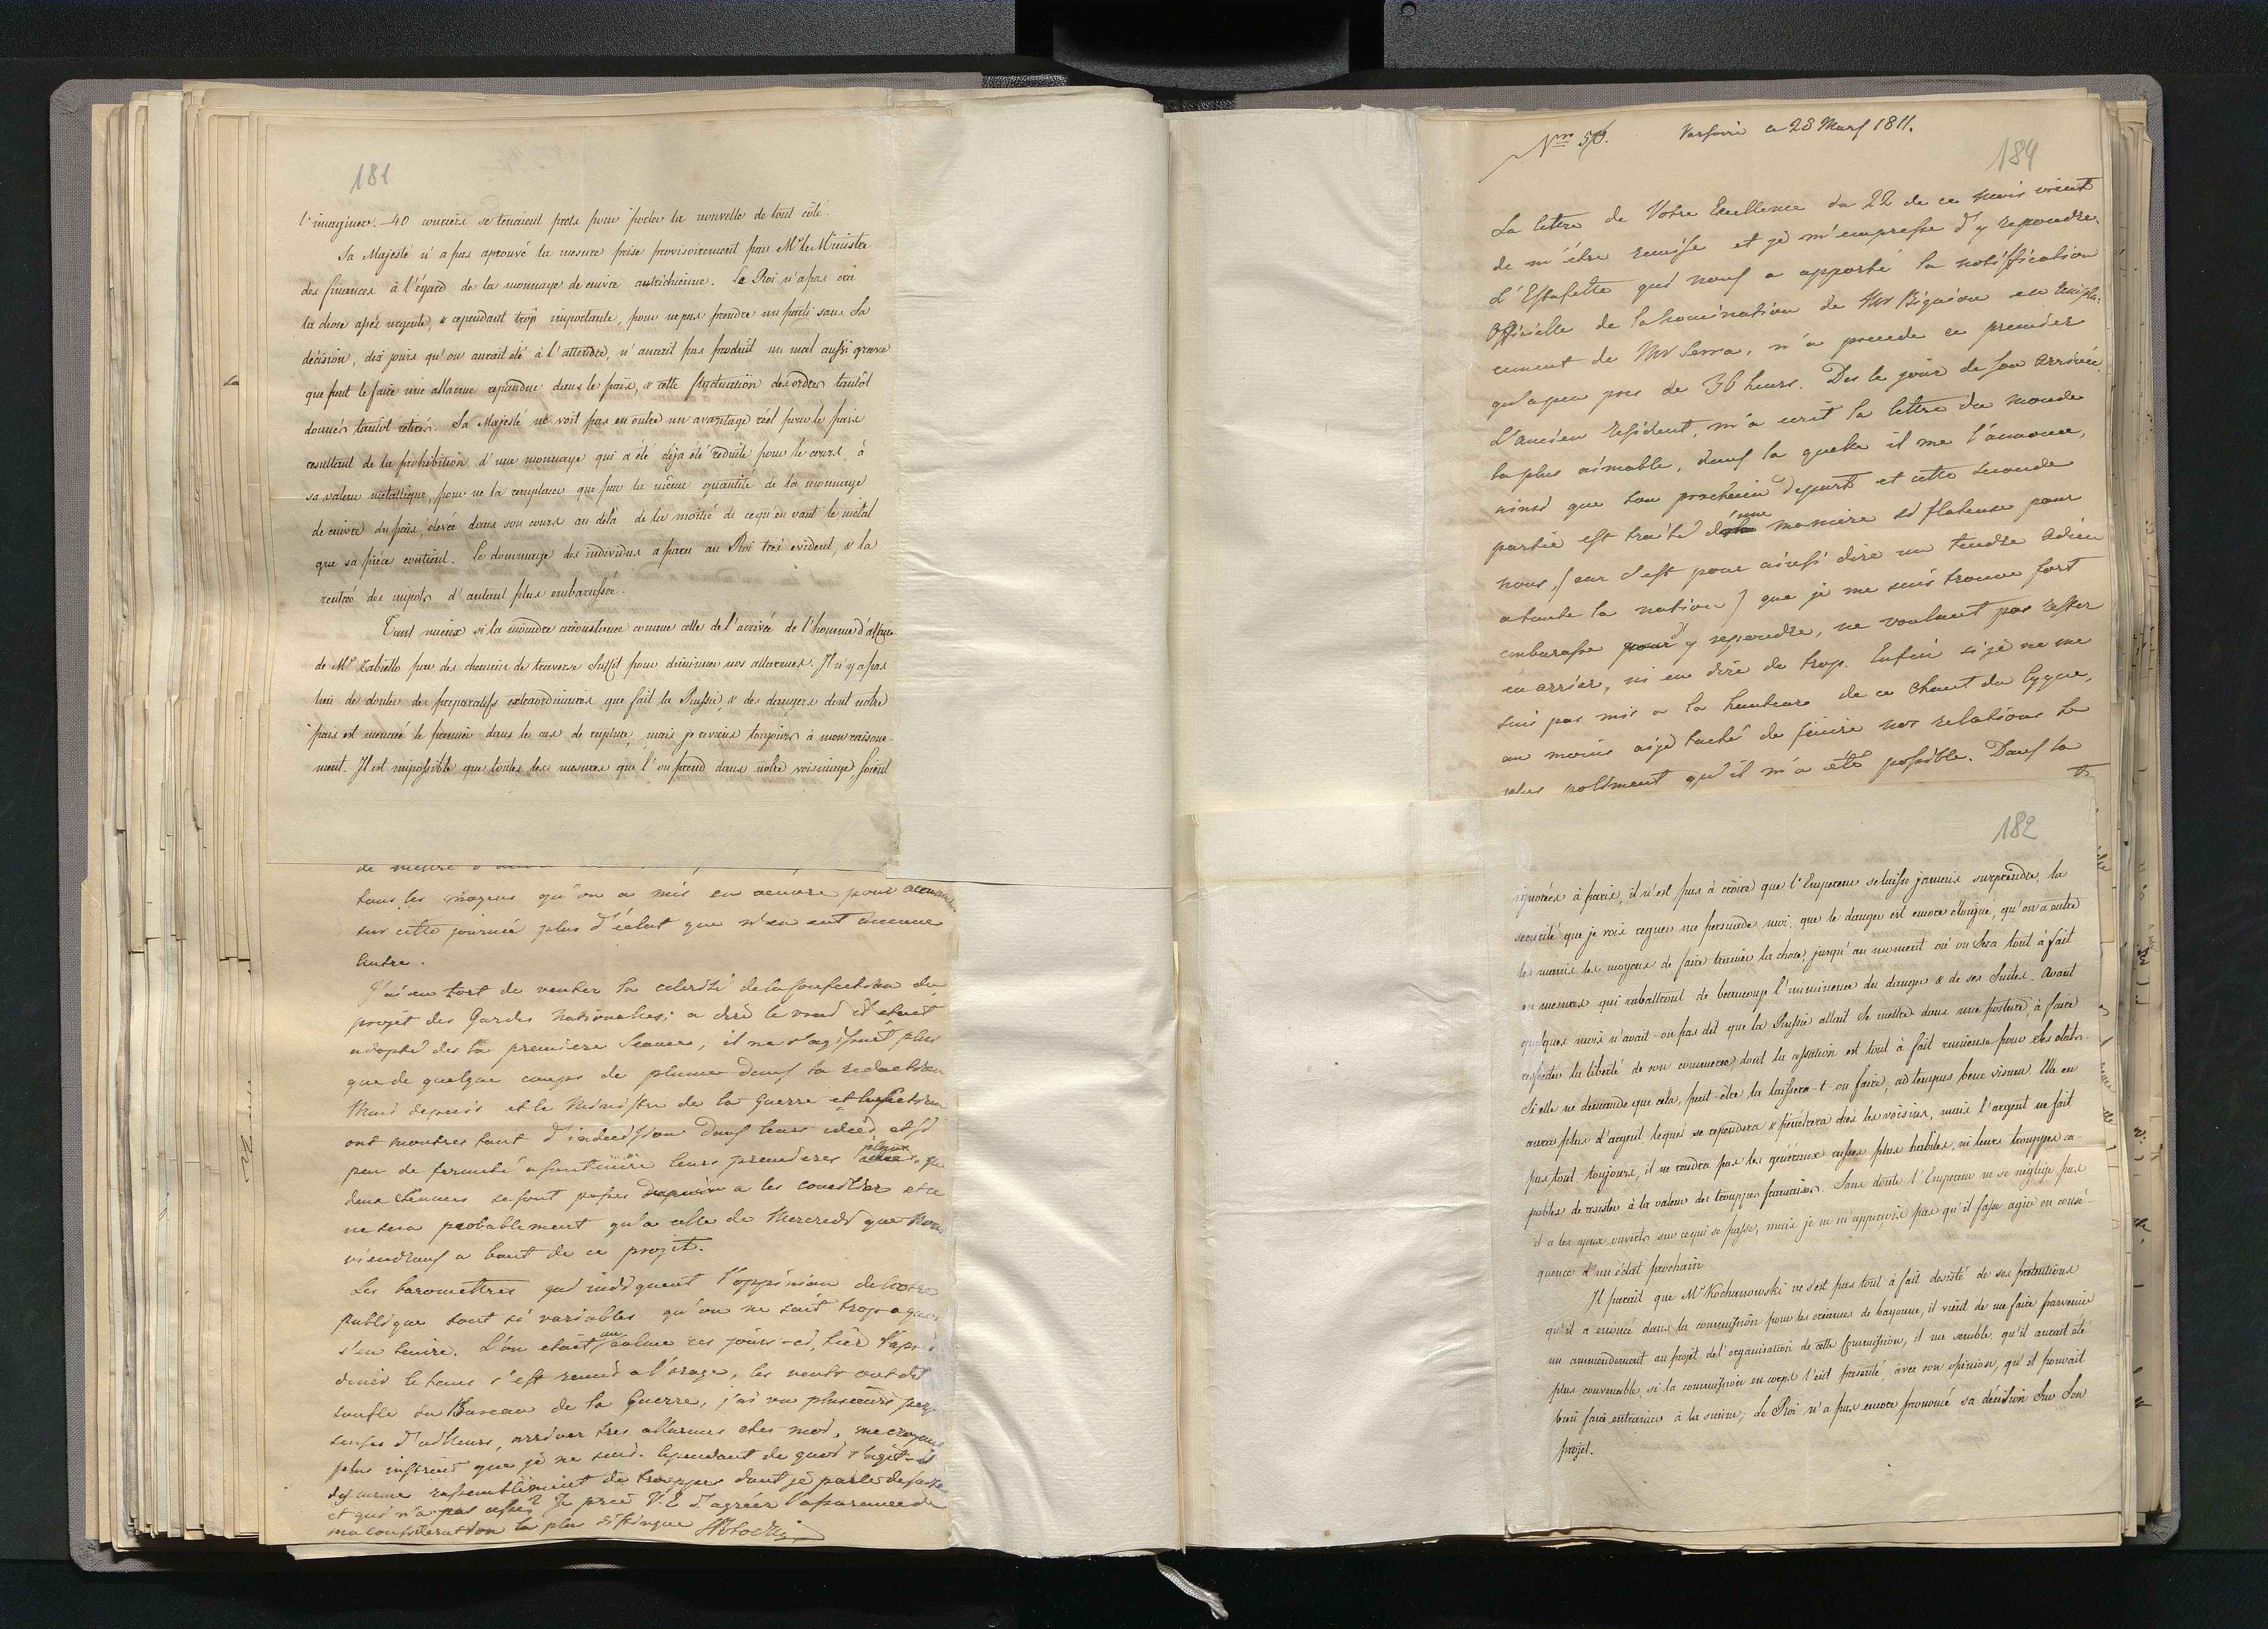 181
l'imaginer. 40 courriers se tenaient prets pour porter la nouvelle de tout côté.
Sa Majesté n'a pas aprouvé la mesure prise provisoirement par Mr le Ministre
des finances à l'égard de la monnaye de cuivre autrichienne. Le Roi n'a pas crû
la chose assés urgente, & cependant trop importante, pour ne pas prendre un parti sans Sa
décision, dix jours qu'on aurait été à l'attendre, n'aurait pas produit un mal aussi grave
que peut le faire une allarme repandue dans le païs, & cette fluctuation des ordres tantôt
donnés tantôt retirés. Sa Majesté ne voit pas en outre un avantage réel pour le païs
resultant de la prohibition d'une monnaye qui a été déja été reduite pour le cours, à
sa valeur metallique, pour ne la remplacer que par la même quantité de la monnaye
de cuivre du païs, élevée dans son cours au delà de la moitié de ce qu'en vaut le métal
que sa piéce contient. Le dommage des individus a paru au Roi tres evident, & la
rentrée des impots d'autant plus embarassée.
Tant mieux si la moindre circonstance comme celle de l'arrivée de l'homme d'affaire
de Mr Zabiello par des chemins de traverse suffit pour diminuer nos allarmes. Il n'y a pas
lieu de douter des preparatifs extraordinaires que fait la Russie, & des dangers dont notre
païs est menacé le premier dans le cas de rupture, mais je reviens toujours à mon raisone-
ment. Il est impossible que toutes les mesures que l'on prend dans notre voisinage, soient
tous les moyens qu'on a mis en oeuvre pour
sur cette journée plus d'éclat que n'en eut aucune
autre.
J'ai eu tort de vanter la celerité de la confection du
projet des Gardes Nationales; a dire le vrai il etait
adopté des la premiere Seance, il ne s'agissait plus
que de quelque coups de plume dans la redaction
Mais depuis et le Ministre de la Guerre et
ont montres tant d'indecission dans leurs idées et si
peu de fermeté a soutenir leurs premieres
deux Seances se sont passes a les concilier et ce
ne sera probablement qu'a celle de Mercredi que nous
viendrons a bout de ce projet.
Les barometres qui indiquent l'oppinion de notre
publique sont si variables qu'on ne sait trop a quoi
s'en tenire. L'on etait au calme ces jours-ci, hier l'apres
diner le tems s'est remis a l'orage, les vents ont
soufle du Bureau de la Guerre, j'ai vu plusieurs
d'ailleurs, arriver tres allarmes chez moi, me croyant
plus instruit que je ne suis. Cependant de quoi s'agit-il
du meme rassemblement de trouppes dont je parle
et qui n'a pas cessé. Je prie V.E. d'agréer l'assurance de
ma consideration la plus distinguee
Nro 50. Varsovie ce 28 Mars 1811.
184
La lettre de Votre Excellence du 22 de ce mois vient
de m'être remise et je m'empresse d'y repondre.
L'Estafette qui nous a apporté la notiffication
Officielle de la nomination de Mr Bignion en rempla-
cement de Mr Serra, n'a precede ce premier
qu'apeu pres de 36 heurs. Des le jour de son arrivée
l'ancien Resident, m'a ecrit la lettre du monde
la plus aimable, dans la quelle il me l'annonce,
ainsi que son prochain depart et cette seconde
partie est traité d'une maniere si flateuse pour
nous, (car c'est pour ainsi dire un tendre adieu
a toute la nation) que je me suis trouve fort
embarasse d'y repondre, ne voulant pas rester
en arrier, ni en dire de trop. Enfin si je ne me
suis pas mis a la hauteur de ce chant du Cygne,
au moins aije taché de finire nos relations le
plus poliment qu'il m'a été possible. Dans la
182
ignorées à paris, il n'est pas à croire que l'Empereur se laisse jamais surprendre, la
securité que je vois regner me persuade moi, que le danger est encore éloigné, qu'on a entre
les mains les moyens de faire trainer la chose, jusqu'au moment où on sera tout à fait
en mesures qui rabattront de beaucoup l'iminence du danger & de ses suites. Avant
quelques mois n'avait-on pas dit que la Russie allait se mettre dans une posture à faire
respecter la liberté de son commerce, dont la cessation est tout à fait ruineuse pour ses etats.
Si elle ne demande que cela, peut-être la laissera-t-on faire, ad tempus bene visum. Elle en
aura plus d'argent lequel se repandra & pénétrera chés les voisins, mais l'argent ne fait
pas tout toujours, il ne rendra pas les généraux russes plus habiles, ni leurs trouppes ca-
pables de resister à la valeur des trouppes françaises. Sans doute l'Empereur ne se neglige pas
il a les yeux ouverts sur ce qui se passe, mais je ne m'apperçois pas qu'il fasse agir en consé-
quence d'un éclat prochain
Il parait que Mr Kochanowski ne s'est pas tout à fait desisté de ses pretentions
qu'il a énoncé dans la commission pour les créances de bayonne, il vient de me faire parvenir
un ammendement au projet de l'organisation de cette Commission, il me semble qu'il aurait été
plus convenable, si la commission en corps l'eût presenté, avec son opinion, qu'il pouvait
bien faire entrainer à la sienne; le Roi n'a pas encore prononcé sa décision sur son
projet.